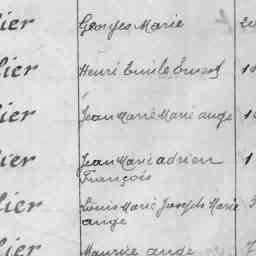 lier Georges Marie 20
lier Henri Emile Ernest 1
lier Jean Marie Marie ange 1
lier Jean Marie adrien 1
François
lier Louis Marie Joseph Marie
ange
lier Maurice ange